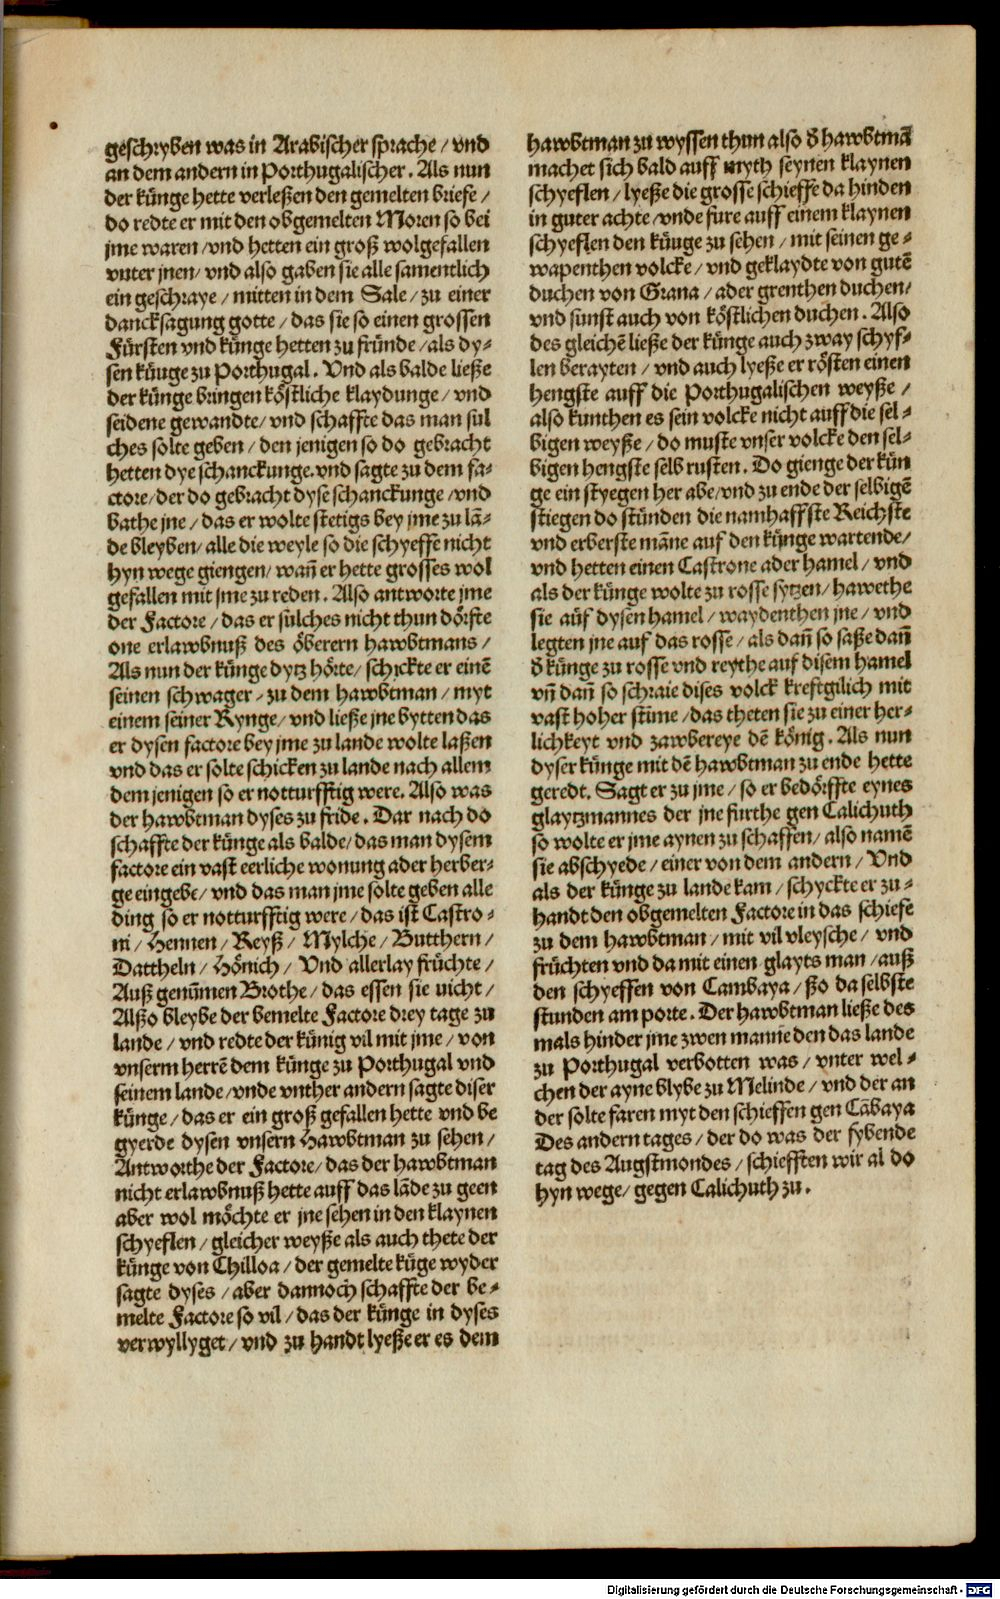 geschryben was in Arabischer sprache / vnd
an dem andern in Porthugalischer. Als nun
der künge hette verleßen den gemelten briefe /
do redte er mit den obgemelten Moren so bei
jme waren / vnd hetten ein groß wolgefallen
vnter jnen / vnd also gaben sie alle samentlich
ein geschraye / mitten in dem Sale / zu einer
dancksagung gotte / das sie so einen grossen
Fürsten vnd künge hetten zu fründe / als dy-
sen küuge zu Porthugal. Vnd als balde ließe
der künge bringen köstliche klaydunge / vnd
seidene gewandte / vnd schaffte das man sul
ches solte geben / den jenigen so do gebracht
hetten dye schanckunge. vnd sagte zu dem fa-
ctore / der do gebracht dyse schanckunge / vnd
bathe jne / das er wolte stetigs bey jme zu lā-
de bleyben / alle die weyle so die schyeffe nicht
hyn wege giengen / wañ er hette grosses wol
gefallen mit jme zu reden. Also antworte jme
der Factore / das er sulches nicht thun dörfte
one erlawbnuß des öberern hawbtmans /
Als nun der künge dytz hörte / schickte er einē
seinen schwager / zu dem hawbtman / myt
einem seiner Rynge / vnd ließe jne bytten das
er dysen factore bey jme zu lande wolte laßen
vnd das er solte schicken zu lande nach allem
dem jenigen so er notturfftig were. Also was
der hawbtman dyses zu fride. Dar nach do
schaffte der künge als balde / das man dysem
factore ein vast eerliche wonung ader herber-
ge eingebe / vnd das man jme solte geben alle
ding so er notturfftig were / das ist Castro-
ni / Hennen / Reyß / Mylche / Butthern /
Dattheln / Hönich / Vnd allerlay früchte /
Auß genūmen Brothe / das essen sie uicht /
Alßo bleybe der bemelte Factore drey tage zu
lande / vnd redte der künig vil mit jme / von
vnserm herrē dem künge zu Porthugal vnd
seinem lande / vnde vnther andern sagte diser
künge / das er ein groß gefallen hette vnd be
gyerde dysen vnsern Hawbtman zu sehen /
Antworthe der Factore / das der hawbtman
nicht erlawbnuß hette auff das lāde zu geen
aber wol möchte er jne sehen in den klaynen
schyeflen / gleicher weyße als auch thete der
künge von Chilloa / der gemelte küge wyder
sagte dyses / aber dannoch schaffte der be-
melte Factore so vil / das der künge in dyses
verwyllyget / vnd zu handt lyeße er es dem
hawbtman zu wyssen thun also d̄ hawbtmā
machet sich bald auff myth seynen klaynen
schyeflen / lyeße die grosse schieffe da hinden
in guter achte / vnde fure auff einem klaynen
schyeflen den küuge zu sehen / mit seinen ge-
wapenthen volcke / vnd geklaydte von gutē
duchen von Grana / ader grenthen duchen /
vnd sunst auch von köstlichen duchen. Also
des gleichē ließe der künge auch zway schyf-
len berayten / vnd auch lyeße er rösten einen
hengste auff die Porthugalischen weyße /
also kunthen es sein volcke nicht auff die sel-
bigen weyße / do muste vnser volcke den sel-
bigen hengste selb rusten. Do gienge der kün
ge ein styegen her abe / vnd zu ende der selbigē
stiegen do stünden die namhaffste Reichste
vnd erberste māne auf den künge wartende /
vnd hetten einen Castrone ader hamel / vnd
als der künge wolte zu rosse sytzen / hawethe
sie aüf dysen hamel / waydenthen jne / vnd
legten jne auf das rosse / als dañ so saße dañ
d̄ künge zu rosse vnd reythe auf disem hamel
vñ dañ so schraie dises volck kreftgilich mit
vast hoher stīme / das theten sie zu einer her-
lichkeyt vnd zawbereye dē könig. Als nun
dyser künge mit dē hawbtman zu ende hette
geredt. Sagt er zu jme / so er bedörffte eynes
glaytzmannes der jne furthe gen Calichuth
so wolte er jme aynen zu schaffen / also namē
sie abschyede / einer von dem andern / Vnd
als der künge zu lande kam / schyckte er zu-
handt den obgemelten Factore in das schiefe
zu dem hawbtman / mit vil vleysche / vnd
früchten vnd da mit einen glayts man / auß
den schyeffen von Cambaya / ßo da selbste
stunden am porte. Der hawbtman ließe des
mals hinder jme zwen manne den das lande
zu Porthugal verbotten was / vnter wel-
chen der ayne blybe zu Melinde / vnd der an
der solte faren myt den schieffen gen Cābaya
Des andern tages / der do was der sybende
tag des Augstmondes / schiefften wir al do
hyn wege / gegen Calichuth zu.
Digitalisierung gefördert durch die Deutsche Forschungsgemeinschaft - DFG